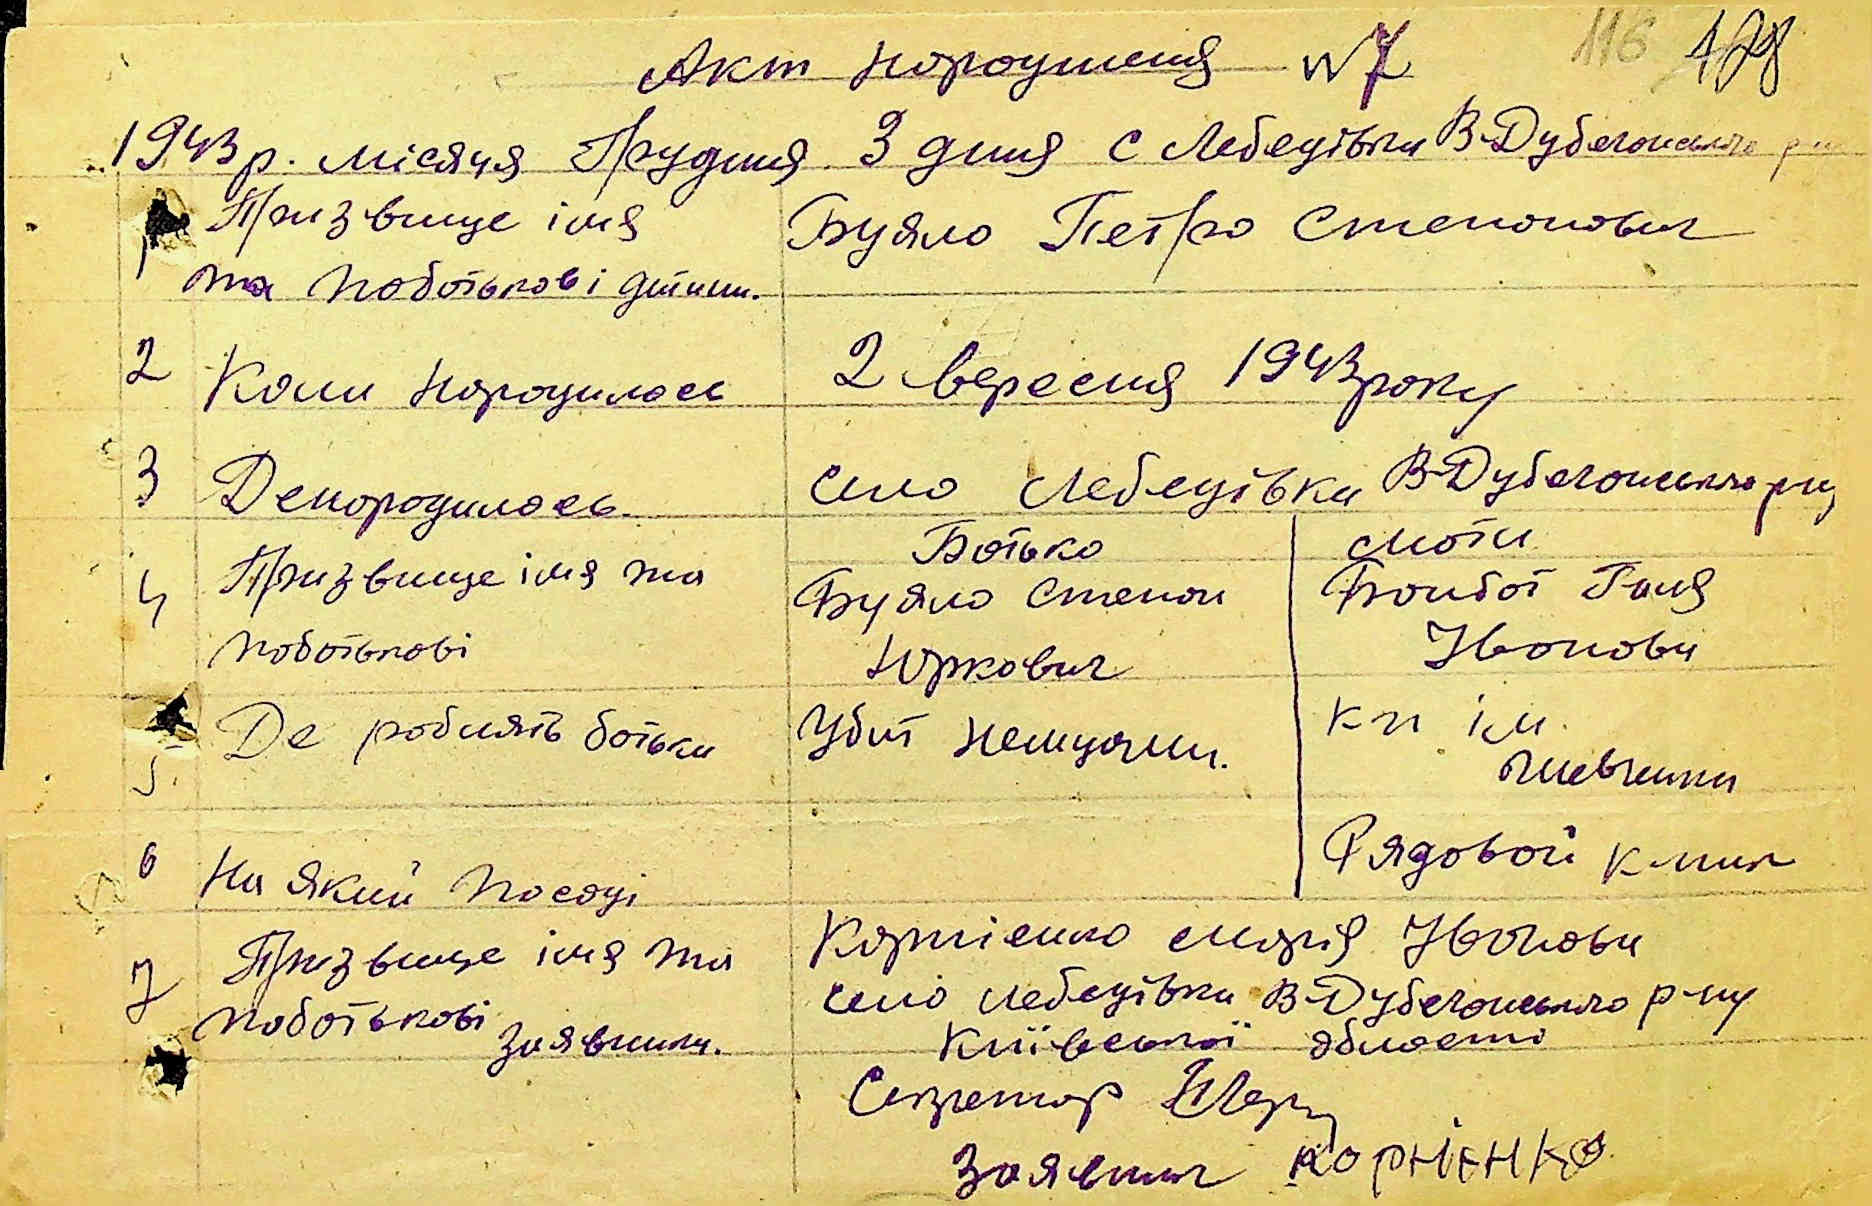 116 178
Акт народження №7
1943 р. місяця Грудня 3 дня с Лебедівки В-Дубечанського р-ну
1 Призвище імя Буяло Петро Степанович
та побатькові дитини.
2 Коли народилось 2 вересня 1943 року
3 Де народилось. село Лебедівки В-Дубечанського р-ну
Батько мати
4 Призвище імя та Буяло Степан Бонбат Ганя
побатькові Юркович Ивановна
5. Де роблять батьки Убит немцями. к-п ім.
Шевченка
6 На якій посаді Рядовой к-ник
7 Призвище імя та Корнієнко Марія Ивановна
побатькові заявника. село Лебедівки В-Дубечанського р-ну
Київської області
Секретар
Заявник КОРНІЕНКО